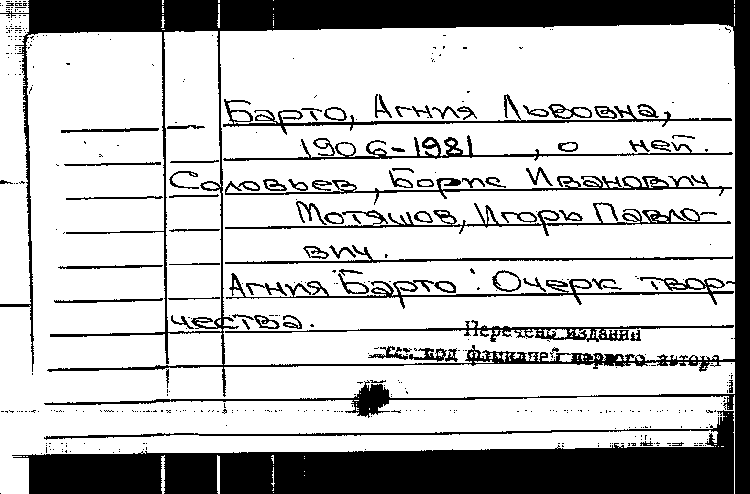 Барто, Агния Львовна,
1906-1981 , о ней.
Соловьев, Борис Иванович,
Мотяшов, Игорь Павло-
вич.
Агния Барто : Очерк твор-
чества.
Перечень издании
см. под фамилией первого автора